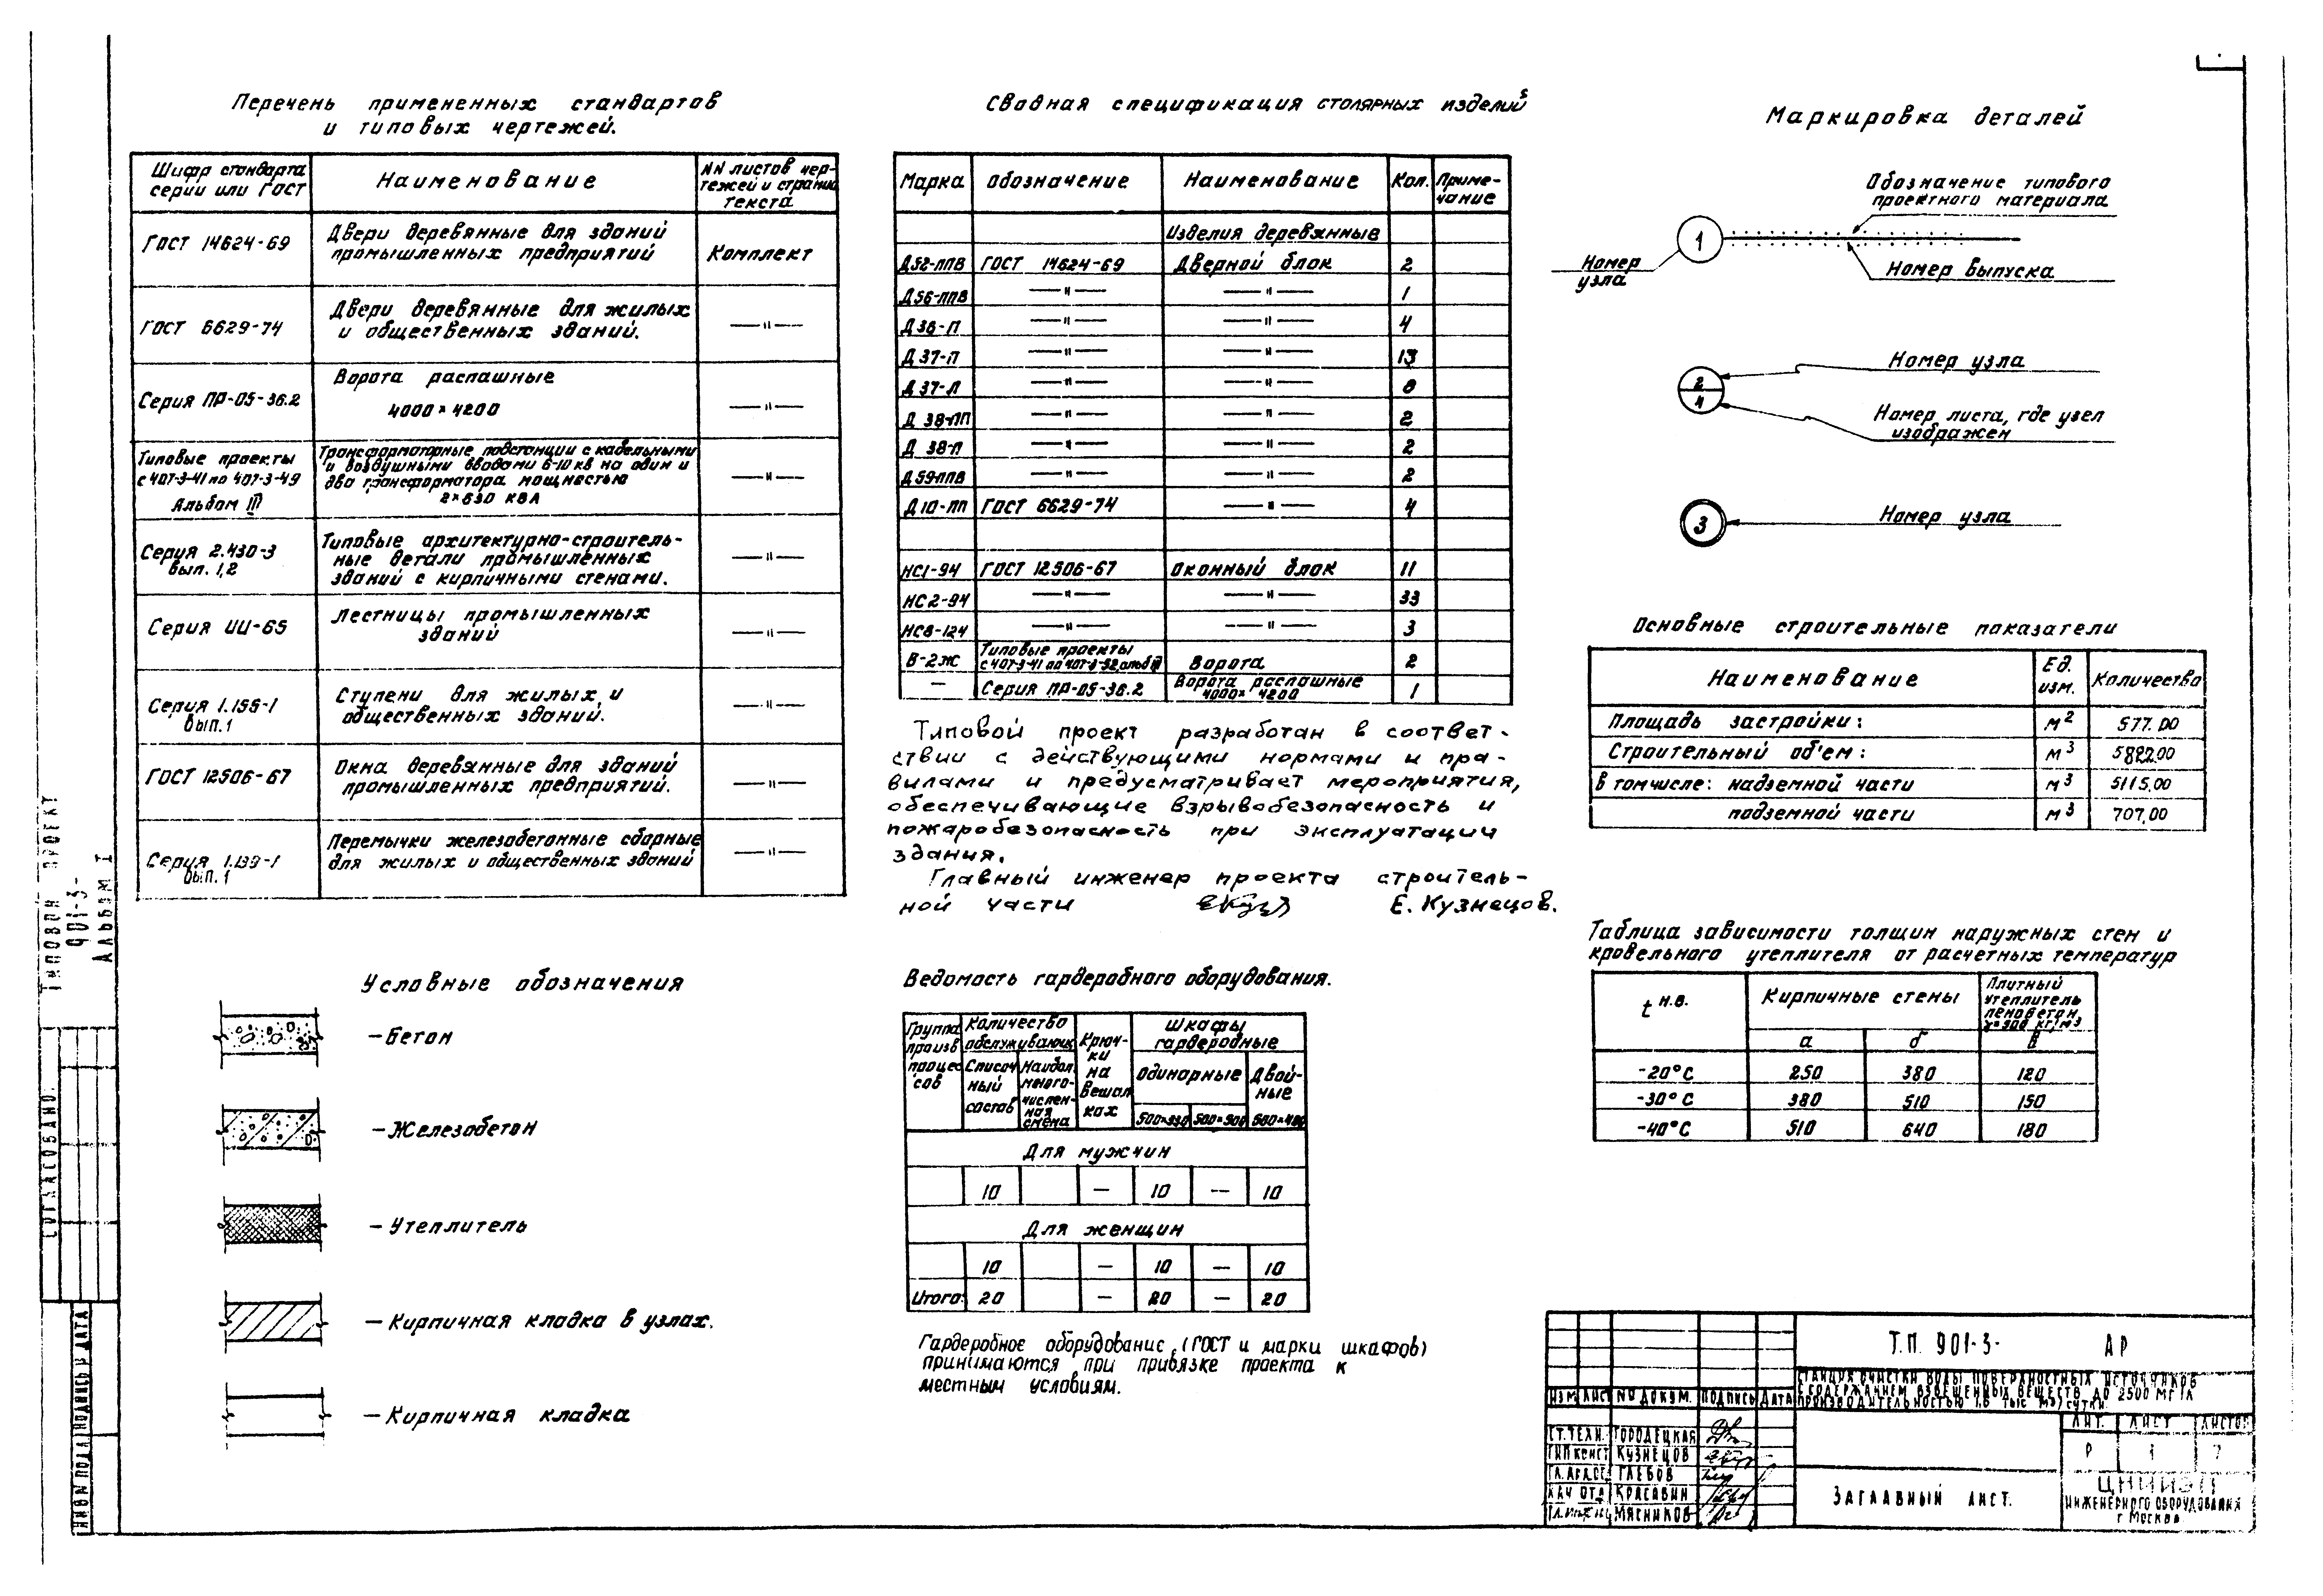 Перечень примененных стандартов
и типовых чертежей.
Шифр стандарта
серии или ГОСТ
Наименование
NN листов чер-
тежей и страниц
текста
ГОСТ 14624-69
Двери деревянные для зданий
промышленных предприятий
Комплект
ГОСТ 6629-74
Двери деревянные для жилых
и общественных зданий.
—"—
Серия ПР-05-36.2
Ворота распашные
4000×4200
—"—
Типовые проекты
с 407-3-41 по 407-3-49
Альбом III
Трансформаторные подстанции с кабельными
и воздушными вводами 6-10 кв на один и
два трансформатора мощностью
2×630 КВА
—"—
Серия 2.430-3
вып. 1,2
Типовые архитектурно-строитель-
ные детали промышленных
зданий с кирпичными стенами.
—"—
Серия ИИ-65
Лестницы промышленных
зданий
—"—
Серия 1.155-1
вып. 1
Ступени для жилых и
общественных зданий.
—"—
ГОСТ 12506-67
Окна деревянные для зданий
промышленных предприятий.
—"—
Серия 1.139-1
вып. 1
Перемычки железобетонные сборные
для жилых и общественных зданий
—"—
Условные обозначения
—Бетон
—Железобетон
—Утеплитель
—Кирпичная кладка в узлах.
—Кирпичная кладка
Сводная спецификация столярных изделий
Марка Обозначение Наименование Кол. Приме-
чание
Изделия деревянные
Д52-ППВ ГОСТ 14624-69 Дверной блок 2
Д56-ППВ —"— —"— 1
Д36-П —"— —"— 4
Д37-П —"— —"— 13
Д37-Л —"— —"— 8
Д 38-ПП —"— —"— 2
Д 38-П —"— —"— 2
Д59-ППВ —"— —"— 2
Д10-ПП ГОСТ 6629-74 —"— 4
НС1-94 ГОСТ 12506-67 Оконный блок 11
НС2-94 —"— —"— 33
НС8-124 —"— —"— 3
В-2ж Типовые проекты
с 407-3-41 по 407-3-52 Ворота 2
— Серия ПР-05-36.2 Ворота распашные
4000×4200 1
Типовой проект разработан в соответ-
ствии с действующими нормами и пра-
вилами и предусматривает мероприятия,
обеспечивающие взрывобезопасность и
пожаробезопасность при эксплуатации
здания.
Главный инженер проекта строитель-
ной части Е. Кузнецов.
Ведомость гардеробного оборудования.
Группа
произв
процес
сов
Количество
обслуживающ
Списоч
ный
состав
Наибол
много-
числен-
ная
смена
Крюч-
ки
на
вешал
ках
Шкафы
гардеробные
Одинарные
Двой-
ные
500×330 500×500 500×400
Для мужчин
10 — 10 — 10
Для женщин
10 — 10 — 10
Итого: 20 — 20 — 20
Гардеробное оборудование (ГОСТ и марки шкафов)
принимаются при привязке проекта к
местным условиям.
Маркировка деталей
Обозначение типового
проектного материала
1
Номер
узла
Номер выпуска
2
4
Номер узла
Номер листа, где узел
изображен
3
Номер узла
Основные строительные показатели
Наименование Ед.
изм. Количество
Площадь застройки: м2 577.00
Строительный об'ем: м3 5822.00
в том числе: надземной части м3 5115.00
подземной части м3 707.00
Таблица зависимости толщин наружных стен и
кровельного утеплителя от расчетных температур
t н.в.
Кирпичные стены
Плитный
утеплитель
пенобетон,
γ=500 кг/м3
а б в
-20°С 250 380 120
-30°С 380 510 150
-40°С 510 640 180
Т.П. 901-3- АР
СТАНЦИЯ ОЧИСТКИ ВОДЫ ПОВЕРХНОСТНЫХ ИСТОЧНИКОВ
С СОДЕРЖАНИЕМ ВЗВЕШЕННЫХ ВЕЩЕСТВ ДО 2500 МГ/Л
ПРОИЗВОДИТЕЛЬНОСТЬЮ 1,6 ТЫС М3/СУТКИ.
ИЗМ ЛИСТ N ДОКУМ. ПОДПИСЬ ДАТА
СТ.ТЕХН. ГОРОДЕЦКАЯ
ГИП КОНСТ КУЗНЕЦОВ
ГЛЕБОВ
НАЧ ОТД КРАСАВИН
МЯСНИКОВ
ЛИТ. ЛИСТ ЛИСТОВ
Р 1 7
ЗАГЛАВНЫЙ ЛИСТ.
ЦНИИЭП
ИНЖЕНЕРНОГО ОБОРУДОВАНИЯ
г МОСКВА
ТИПОВОЙ ПРОЕКТ
901-3-
АЛЬБОМ I
СОГЛАСОВАНО:
ПОДПИСЬ И ДАТА